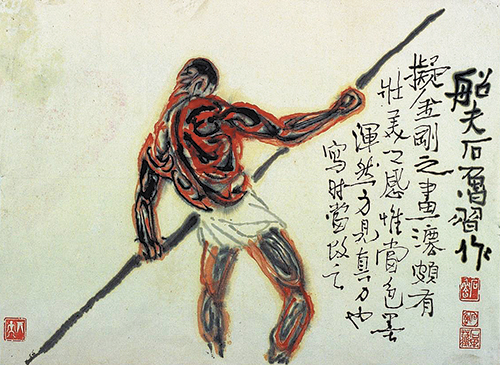 船夫石魯習作
擬金剛之畫灋頗有
壯美之感惟當色墨
渾然方見真力也
寫时當